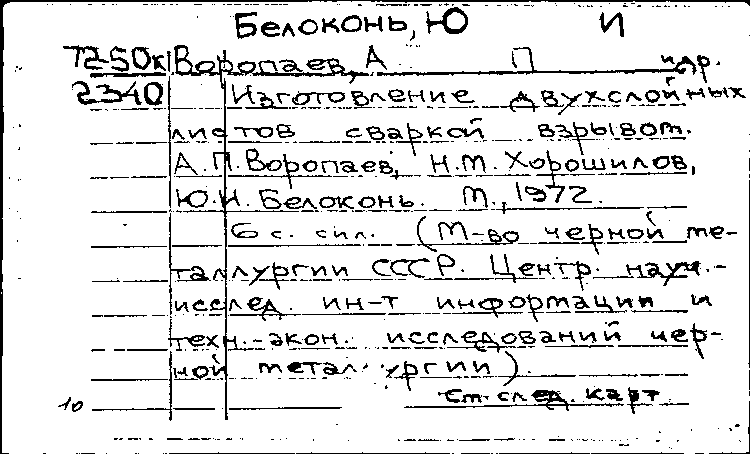 Белоконь, Ю И
72-50к Воропаев, А П и др.
2340 Изготовление двухслойных
листов сваркой взрывом.
А.П. Воропаев, Н.М. Хорошилов,
Ю.И. Белоконь. М., 1972.
6 с. с ил. (М-во черной ме-
таллургии СССР. Центр. науч.-
исслед. ин-т информации и
техн.-экон. исследований чер-
ной метал.ургии).
См. след. карт
10